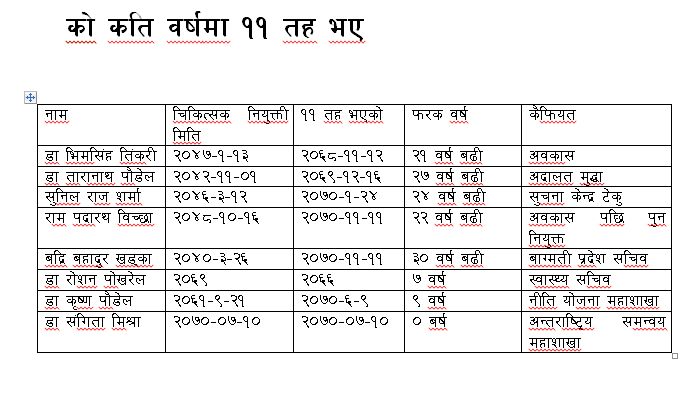 को कति वर्षमा ११ तह भए
नाम चिकित्सक नियुक्ती ११ तह भएको फरक वर्ष कैफियत
मिति
डा भिमसिंह तिंकरी २०४७-१-१३ २०६८-११-१२ २१ वर्ष बढी अवकास
डा तारानाथ पौडेल २०४२-११-०१ २०६९-१२-१६ २७ वर्ष बढी अदालत मुद्धा
सुनिल राज शर्मा २०४६-३-१२ २०७०-१-२४ २४ वर्ष बढी सुचना केन्द्र टेकु
राम पदारथ विच्छा २०४८-१०-१६ २०७०-११-११ २२ वर्ष बढी अवकास पछि पुन
नियुक्त
बद्रि बहादुर खड्का २०४०-३-२६ २०७०-११-११ ३० वर्ष बढी बाग्मती प्रदेश सचिव
डा रोशन पोखरेल २०६९ २०६६ ७ वर्ष स्वास्थ्य सचिव
डा कृष्ण पौडेल २०६१-९-२१ २०७०-६-९ ९ वर्ष नीति योजना महाशाखा
डा संगिता मिश्रा २०७०-०७-१० २०७०-०७-१० ० बर्ष अन्तराष्ट्रिय समन्वय
महाशाखा